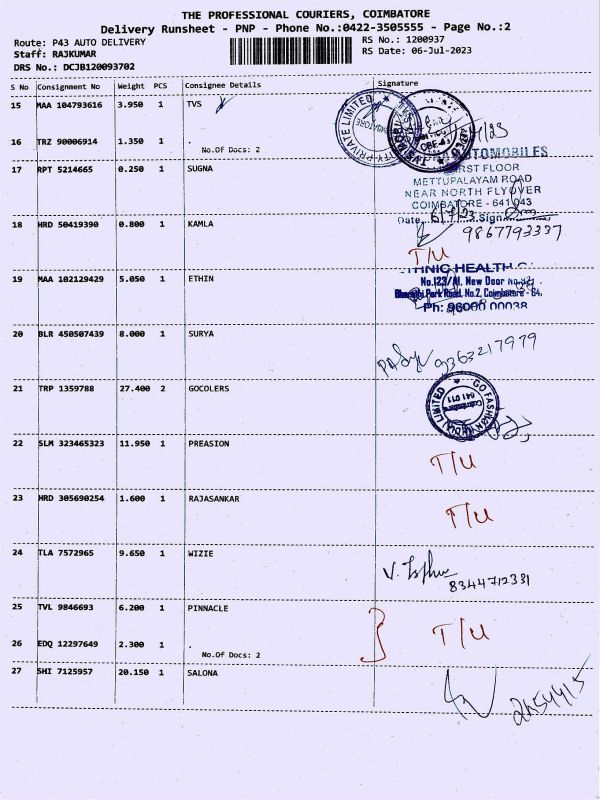 THE PROFESSIONAL COURIERS, COIMBATORE
Delivery Runsheet - PNP - Phone No.:0422-3505555 - Page No.:2
Route: P43 AUTO DELIVERY
RS No.: 1200937
Staff: RAJKUMAR
RS Date: 06-Jul-2023
DRS No.: DCJB120093702
S No Consignment No Weight PCS Consignee Details Signature
15 MAA 104793616 3.950 1 TVS
16 TRZ 90006914 1.350 1 .
No.Of Docs: 2
17 RPT 5214665 0.250 1 SUGNA
AUTOMOBILES
FIRST FLOOR
METTUPALAYAM ROAD
NEAR NORTH FLYOVER
COIMBATORE - 641 043
Date 6/7/23 Sign
18 HRD 50419390 0.800 1 KAMLA
9867793337
T/U
19 MAA 102129429 5.050 1 ETHIN
ETHNIC HEALTH
No.123/A1, New Door No.
Bharathi Park Road, No.2, Coimbatore - 64
Ph: 96000 00038
20 BLR 450507439 8.000 1 SURYA
9363217979
21 TRP 1359788 27.400 2 GOCOLERS
GO FASHION (INDIA) LIMITED
Coimbatore
641 011
22 SLM 323465323 11.950 1 PREASION
T/U
23 HRD 305690254 1.600 1 RAJASANKAR
T/U
24 TLA 7572965 9.650 1 WIZIE
V.
8344712331
25 TVL 9846693 6.200 1 PINNACLE
T/U
26 EDQ 12297649 2.300 1 .
No.Of Docs: 2
27 SHI 7125957 20.150 1 SALONA